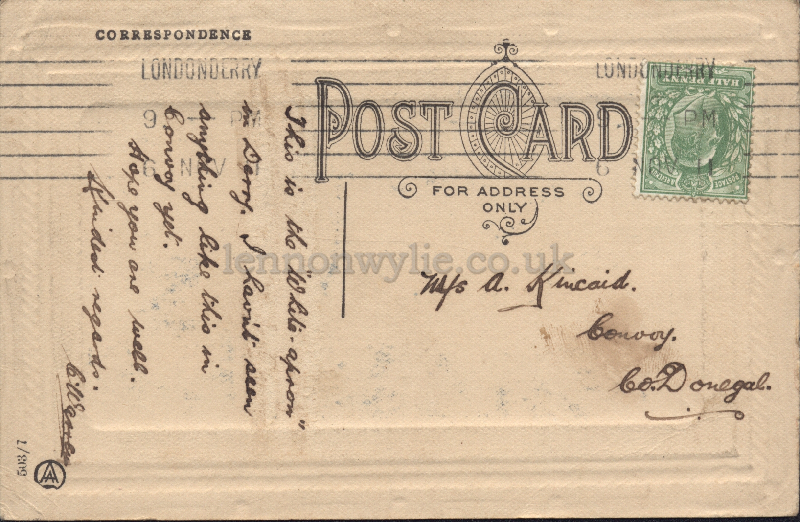 CORRESPONDENCE
LONDONDERRY
9 PM
6 NOV 11
LONDONDERRY
PM
6 NOV 11
POST CARD
FOR ADDRESS
ONLY
HALF
POSTAGE
This is the "White-apron"
in Derry. I havn't seen
anything like this in
Convoy yet.
Hope you are well.
Kindest regards.
M/s A. Kincaid.
Convoy.
Co. Donegal.
lennonwylie.co.uk
503/7